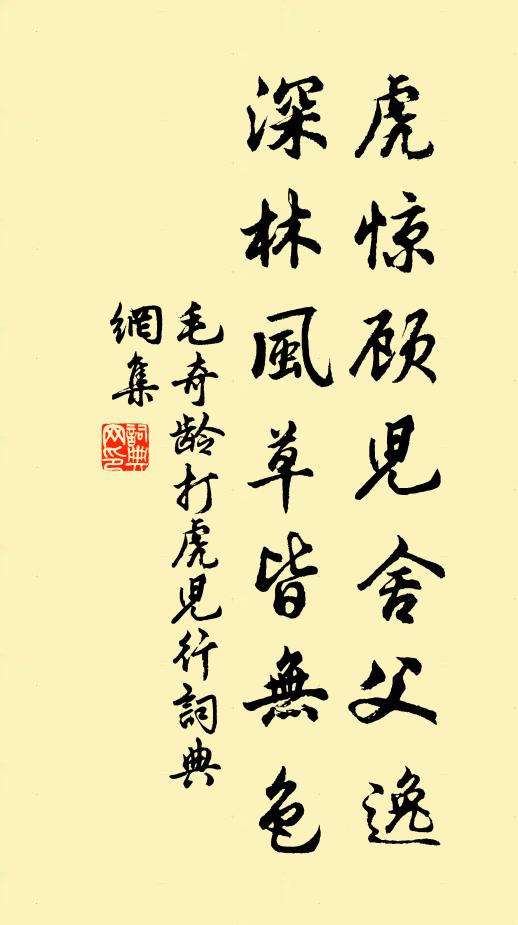 虎惊顾児舍父逸
深林風草皆無色
毛奇龄打虎児行詞典
網集
詞典
网印